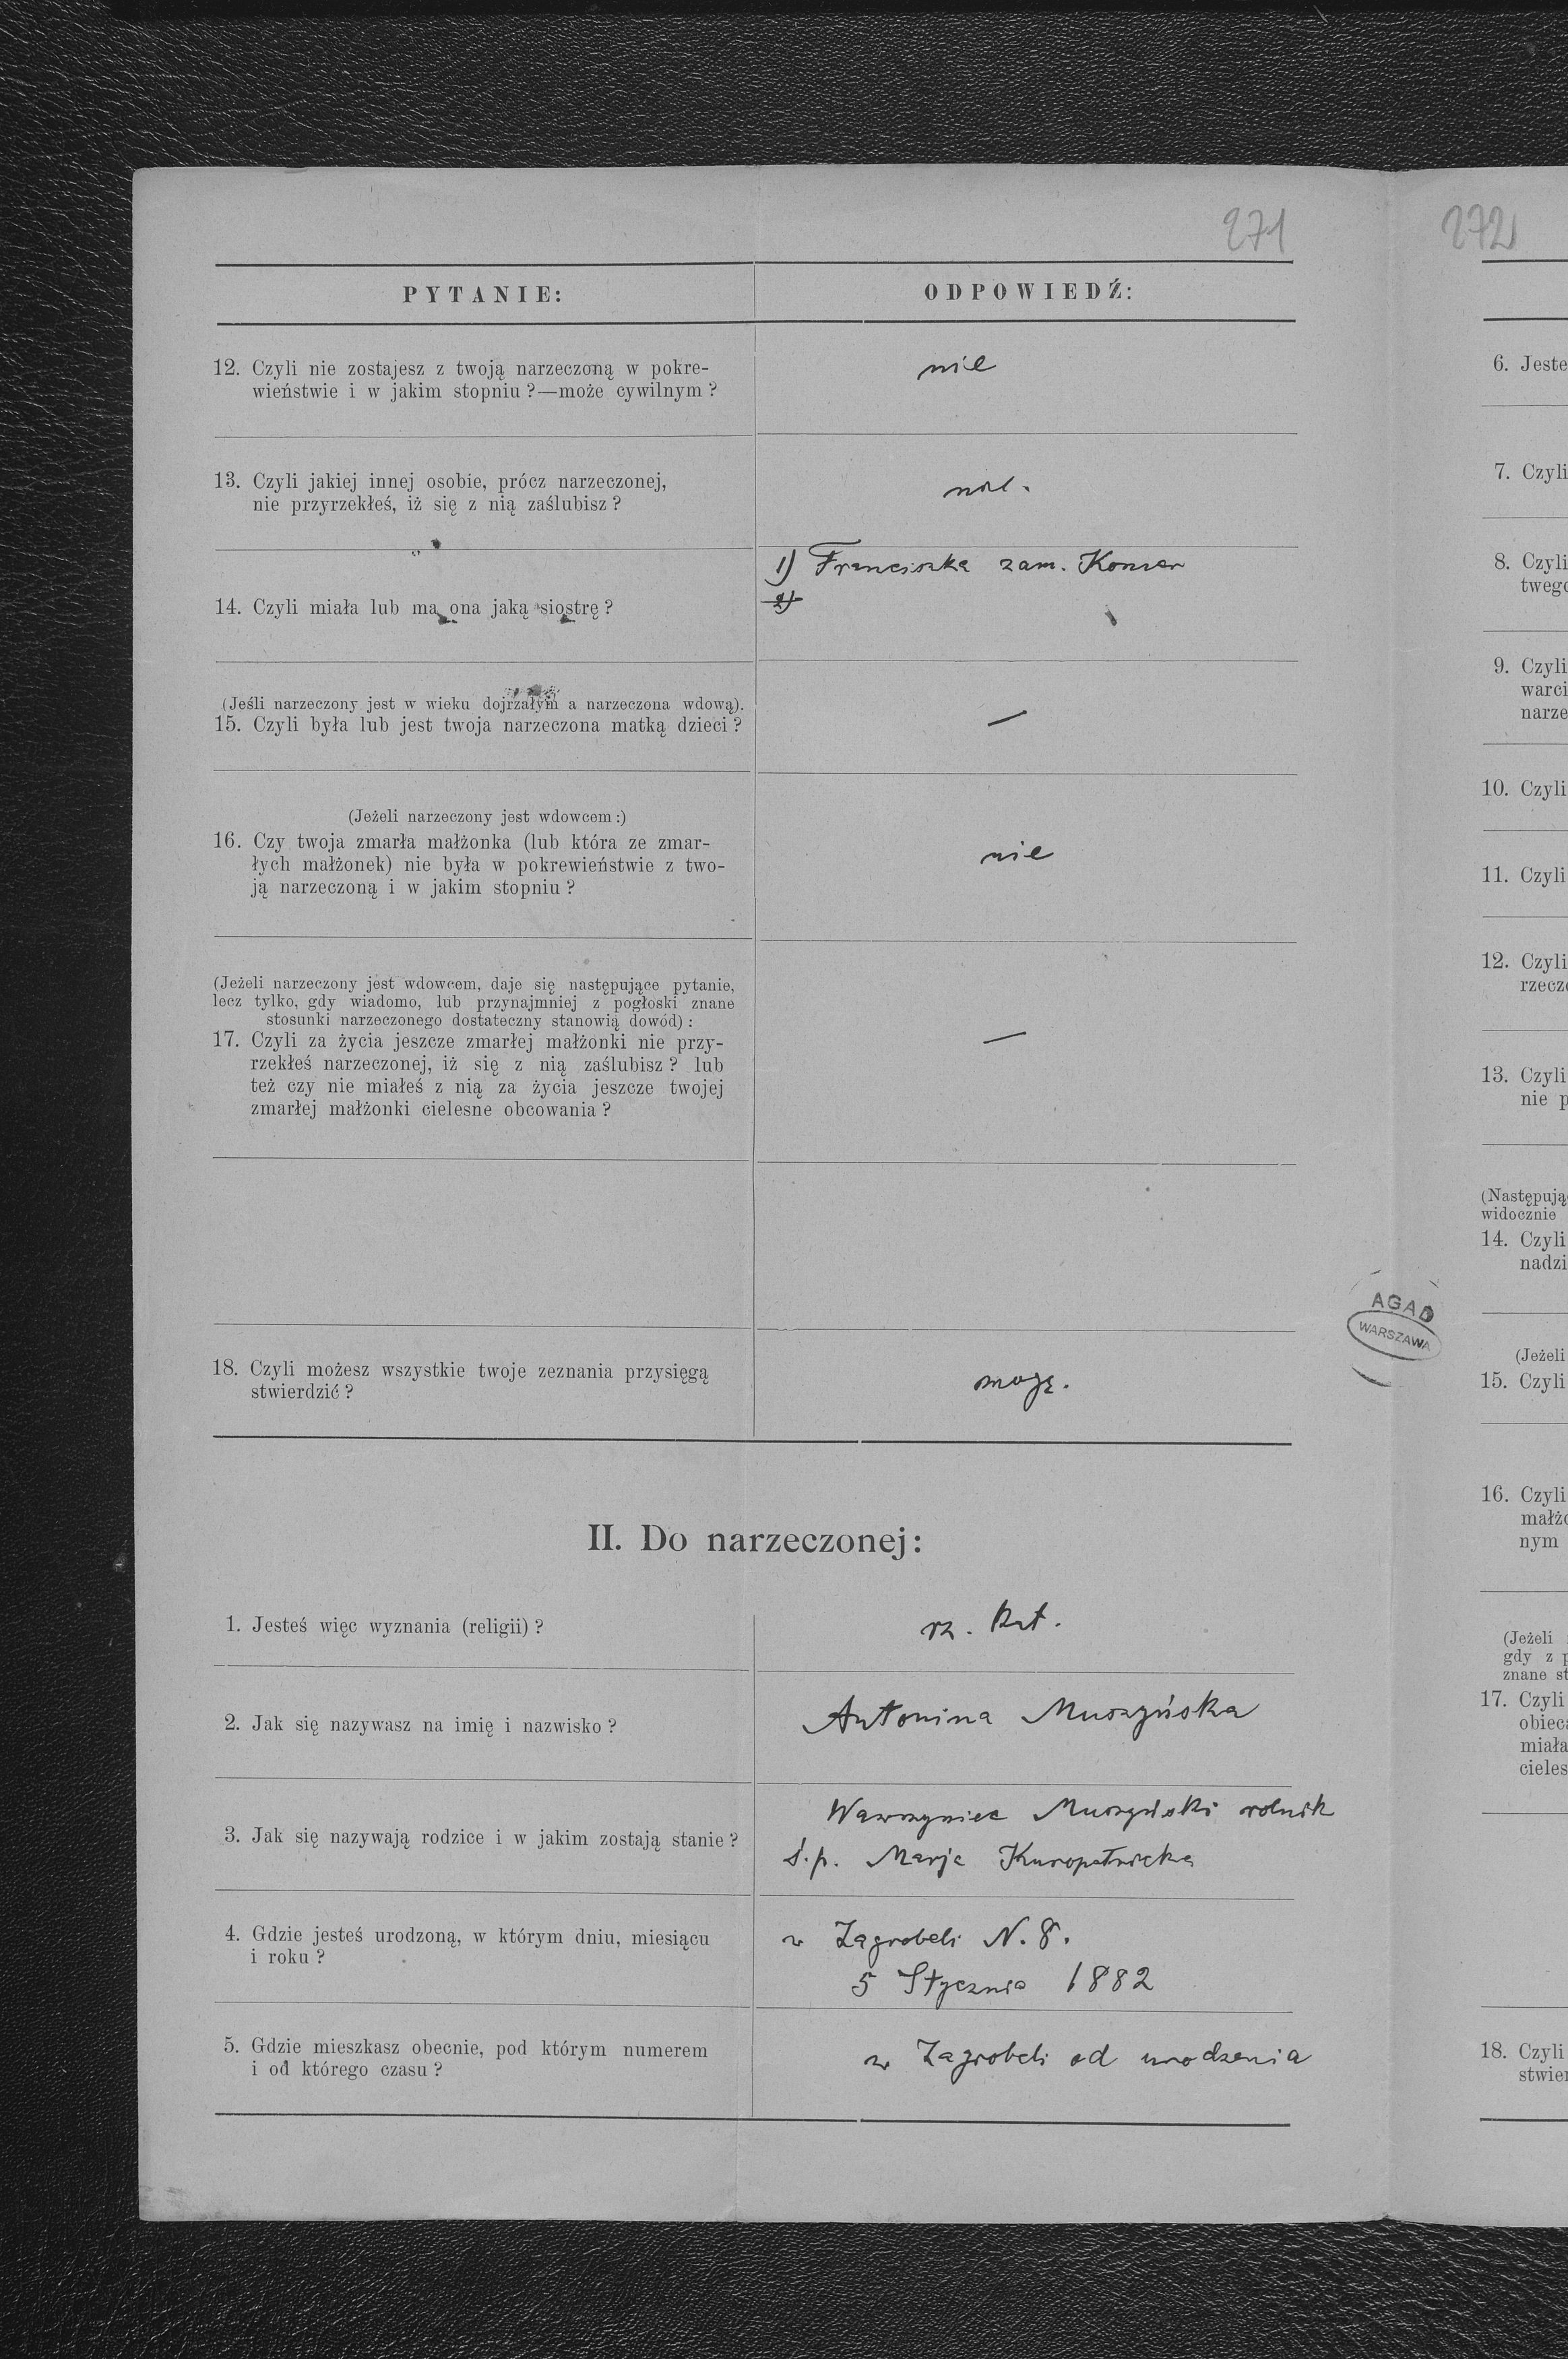 271
PYTANIE:
ODPOWIEDŹ:
12. Czyli nie zostajesz z twoją narzeczoną w pokre-
wieństwie i w jakim stopniu?—może cywilnym?
nie
13. Czyli jakiej innej osobie, prócz narzeczonej,
nie przyrzekłeś, iż się z nią zaślubisz?
nie.
14. Czyli miała lub ma ona jaką siostrę?
1) Franciszka zam. Komar
2)
(Jeśli narzeczony jest w wieku dojrzałym a narzeczona wdową).
15. Czyli była lub jest twoja narzeczona matką dzieci?
—
(Jeżeli narzeczony jest wdowcem:)
16. Czy twoja zmarła małżonka (lub która ze zmar-
łych małżonek) nie była w pokrewieństwie z two-
ją narzeczoną i w jakim stopniu?
nie
(Jeżeli narzeczony jest wdowcem, daje się następujące pytanie,
lecz tylko, gdy wiadomo, lub przynajmniej z pogłoski znane
stosunki narzeczonego dostateczny stanowią dowód):
17. Czyli za życia jeszcze zmarłej małżonki nie przy-
rzekłeś narzeczonej, iż się z nią zaślubisz? lub
też czy nie miałeś z nią za życia jeszcze twojej
zmarłej małżonki cielesne obcowania?
—
18. Czyli możesz wszystkie twoje zeznania przysięgą
stwierdzić?
mogę.
II. Do narzeczonej:
1. Jesteś więc wyznania (religii)?
rz. kat.
2. Jak się nazywasz na imię i nazwisko?
Antonina Muszyńska
3. Jak się nazywają rodzice i w jakim zostają stanie?
Wawrzyniec Muszyński rolnik
ś.p. Marja Kuropatnicka
4. Gdzie jesteś urodzoną, w którym dniu, miesiącu
i roku?
w Zagrobeli N. 8.
5 Stycznia 1882
5. Gdzie mieszkasz obecnie, pod którym numerem
i od którego czasu?
w Zagrobeli od urodzenia
AGAD
WARSZAWA
272
6. Jeste
7. Czyli
8. Czyli
twego
9. Czyli
warci
narze
10. Czyli
11. Czyli
12. Czyli
rzecz
13. Czyli
nie p
(Następują
widocznie
14. Czyli
nadzi
(Jeżeli
15. Czyli
16. Czyli
małżo
nym
(Jeżeli
gdy z p
znane st
17. Czyli
obieca
miała
cieles
18. Czyli
stwier